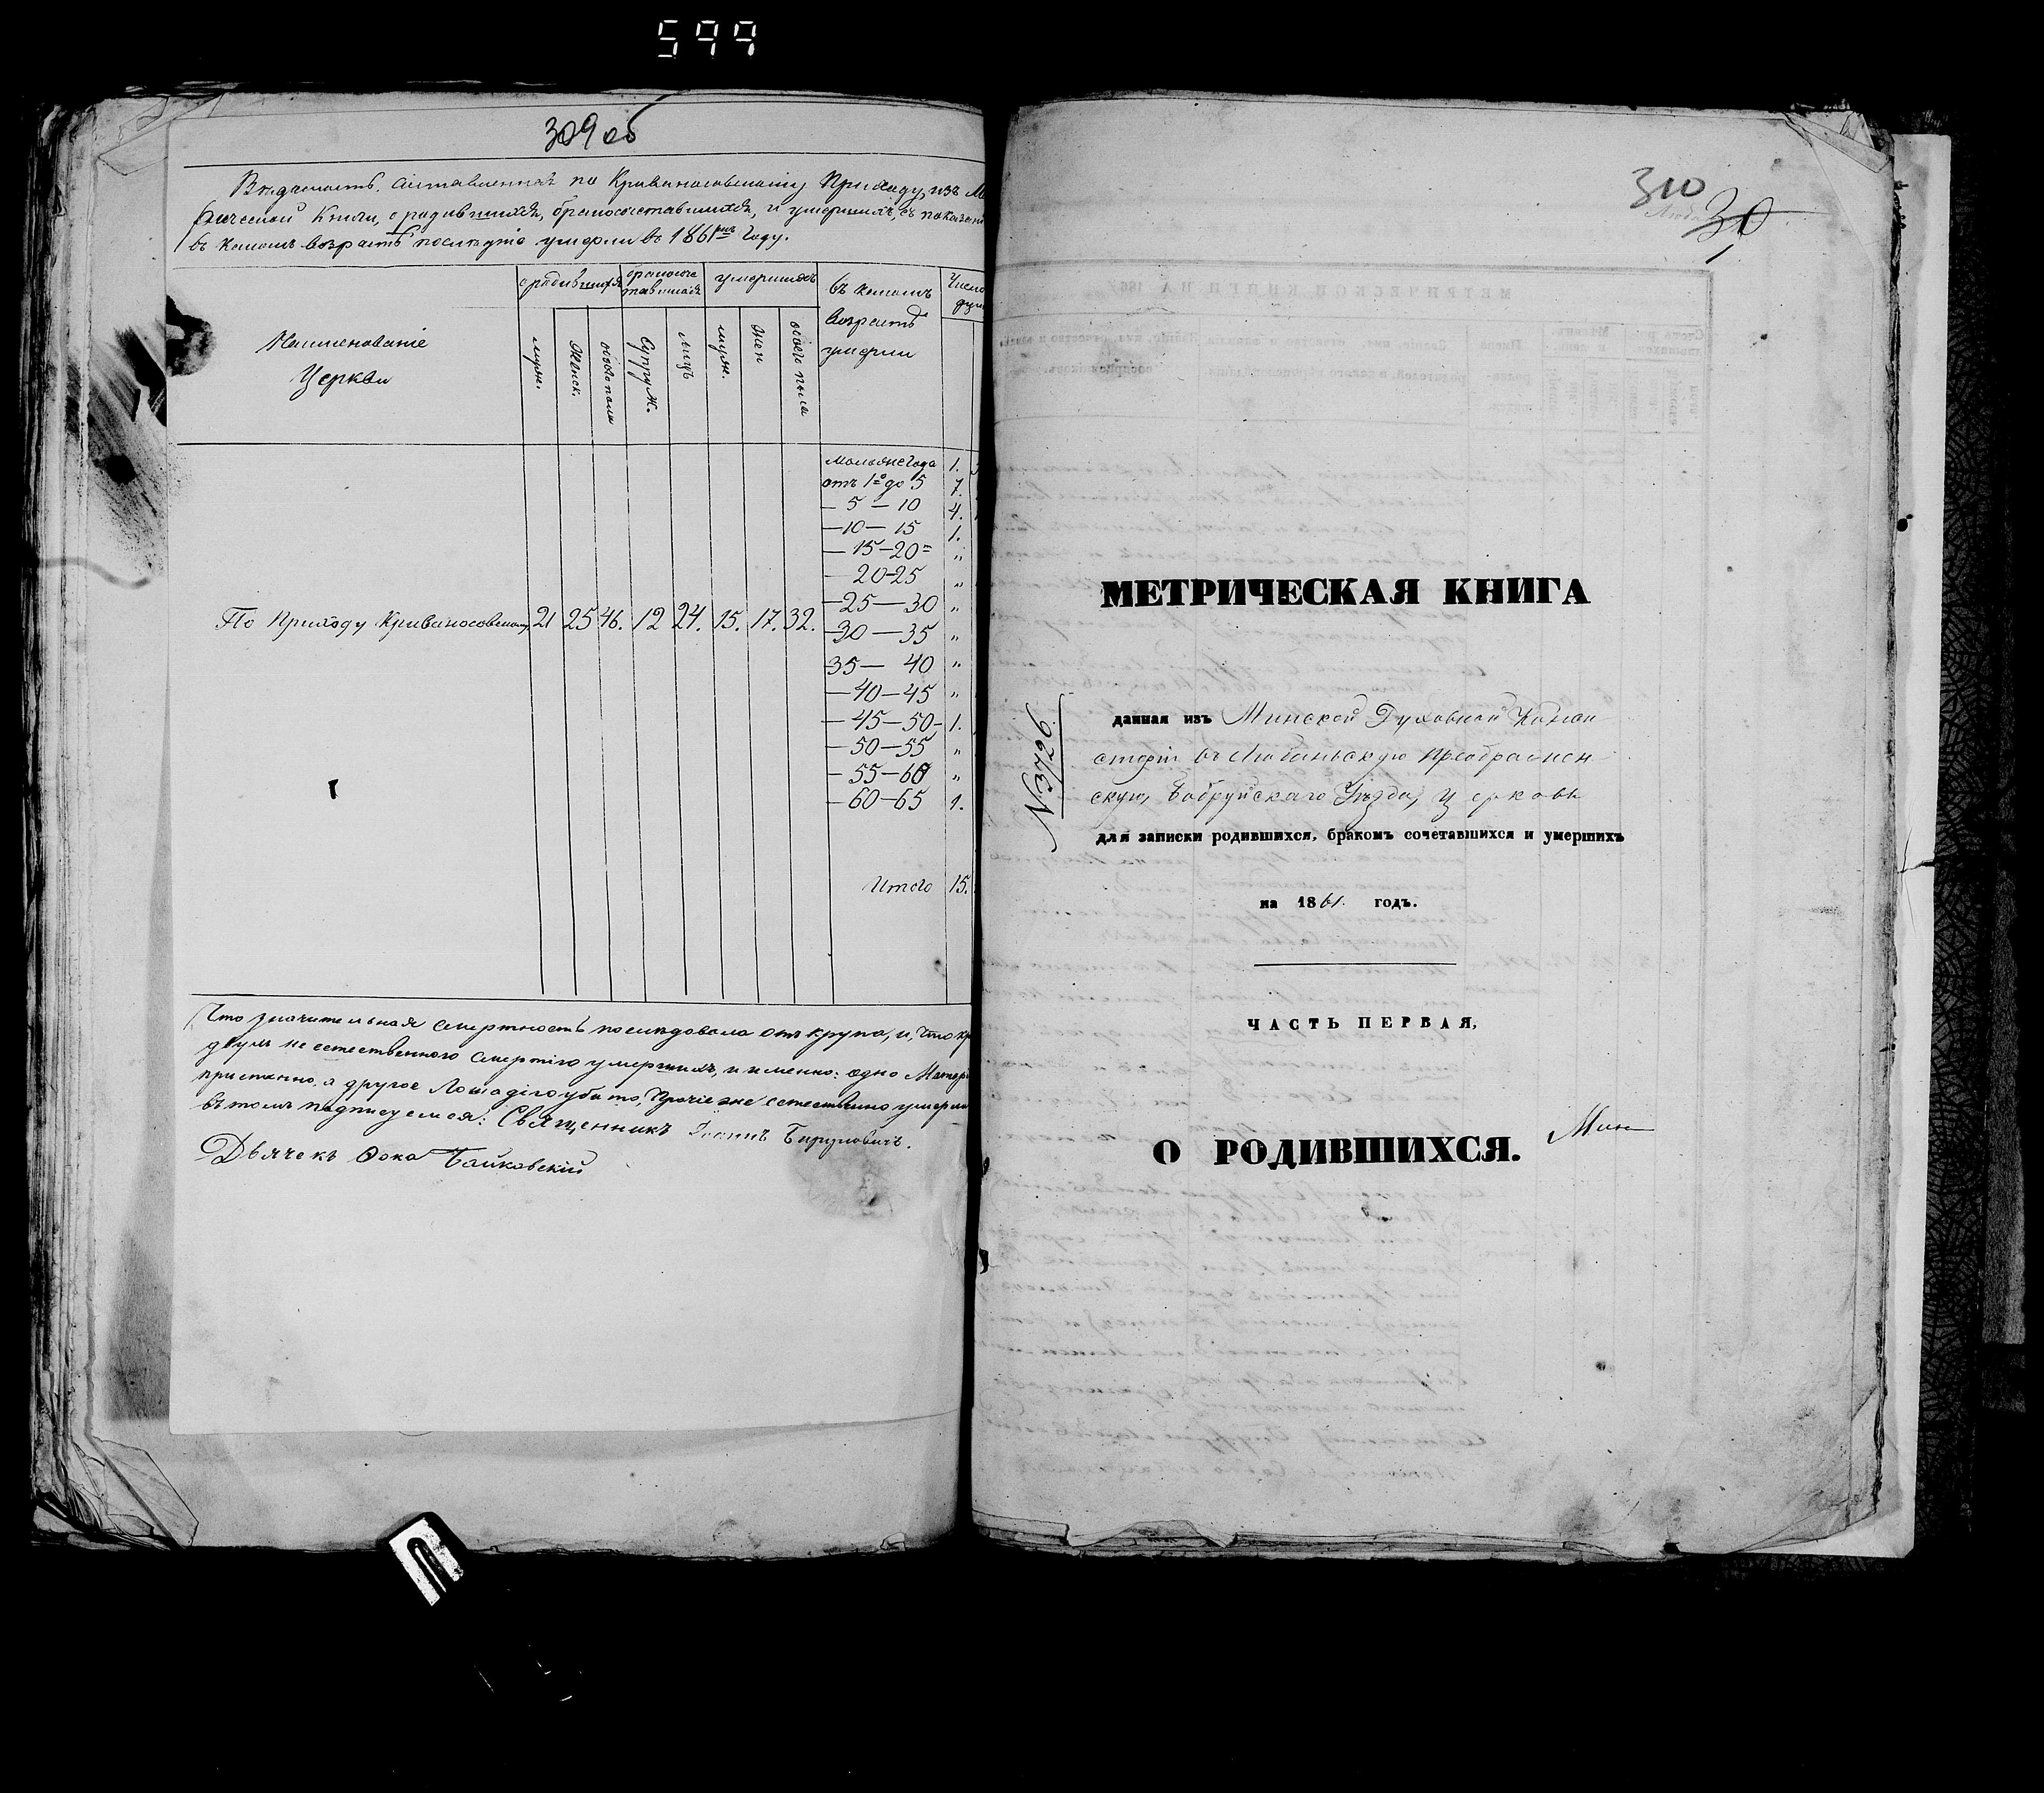 599
309 об
Ведомость, составленная по Кривоносовскому Приходу, изъ М
рической Книги, о родившихся, бракосочетавшихся, и умершихъ, съ показані
въ какомъ возрастѣ послѣдніе умерли въ 1861мъ Году.
Наименованіе
Церкви
о родившихся
бракосоче
тавшихся
умершихъ
въ какомъ
возрастѣ
умерли
Число
душ
муж.
женск.
обоего пола
Супруж.
лицъ
муж.
жен
обоего пола
По Приходу Кривоносовскому 21 25 46. 12 24. 15. 17. 32.
Моложе года 1.
отъ 1го до 5 7.
– 5 – 10 4.
– 10 – 15 1.
– 15 – 20 = „
– 20 – 25 „
– 25 – 30 „
– 30 – 35 „
35 – 40 „
– 40 – 45 „
– 45 – 50 – 1.
– 50 – 55 „
– 55 – 60 „
– 60 – 65 1.
Итого 15.
Что значительная смертность последовала отъ крупа, и, что кр
двухъ не естественною смертію умершихъ, и именно: одно Матер
приспанно, а другое Лошадію убито, Прочіе же естественно умерли
въ томъ подписуемся: Священникъ Іоаннъ
Дьячекъ Фока Байковскій
310
30
МЕТРИЧЕСКАЯ КНИГА
№ 3726
данная изъ Минской Духовной Конси
сторіи въ Любаньскую Преображен
скую, Бобруйскаго Уѣзда, Церковь
для записки родившихся, бракомъ сочетавшихся и умершихъ
на 1861. годъ.
ЧАСТЬ ПЕРВАЯ,
О РОДИВШИХСЯ.
Мин